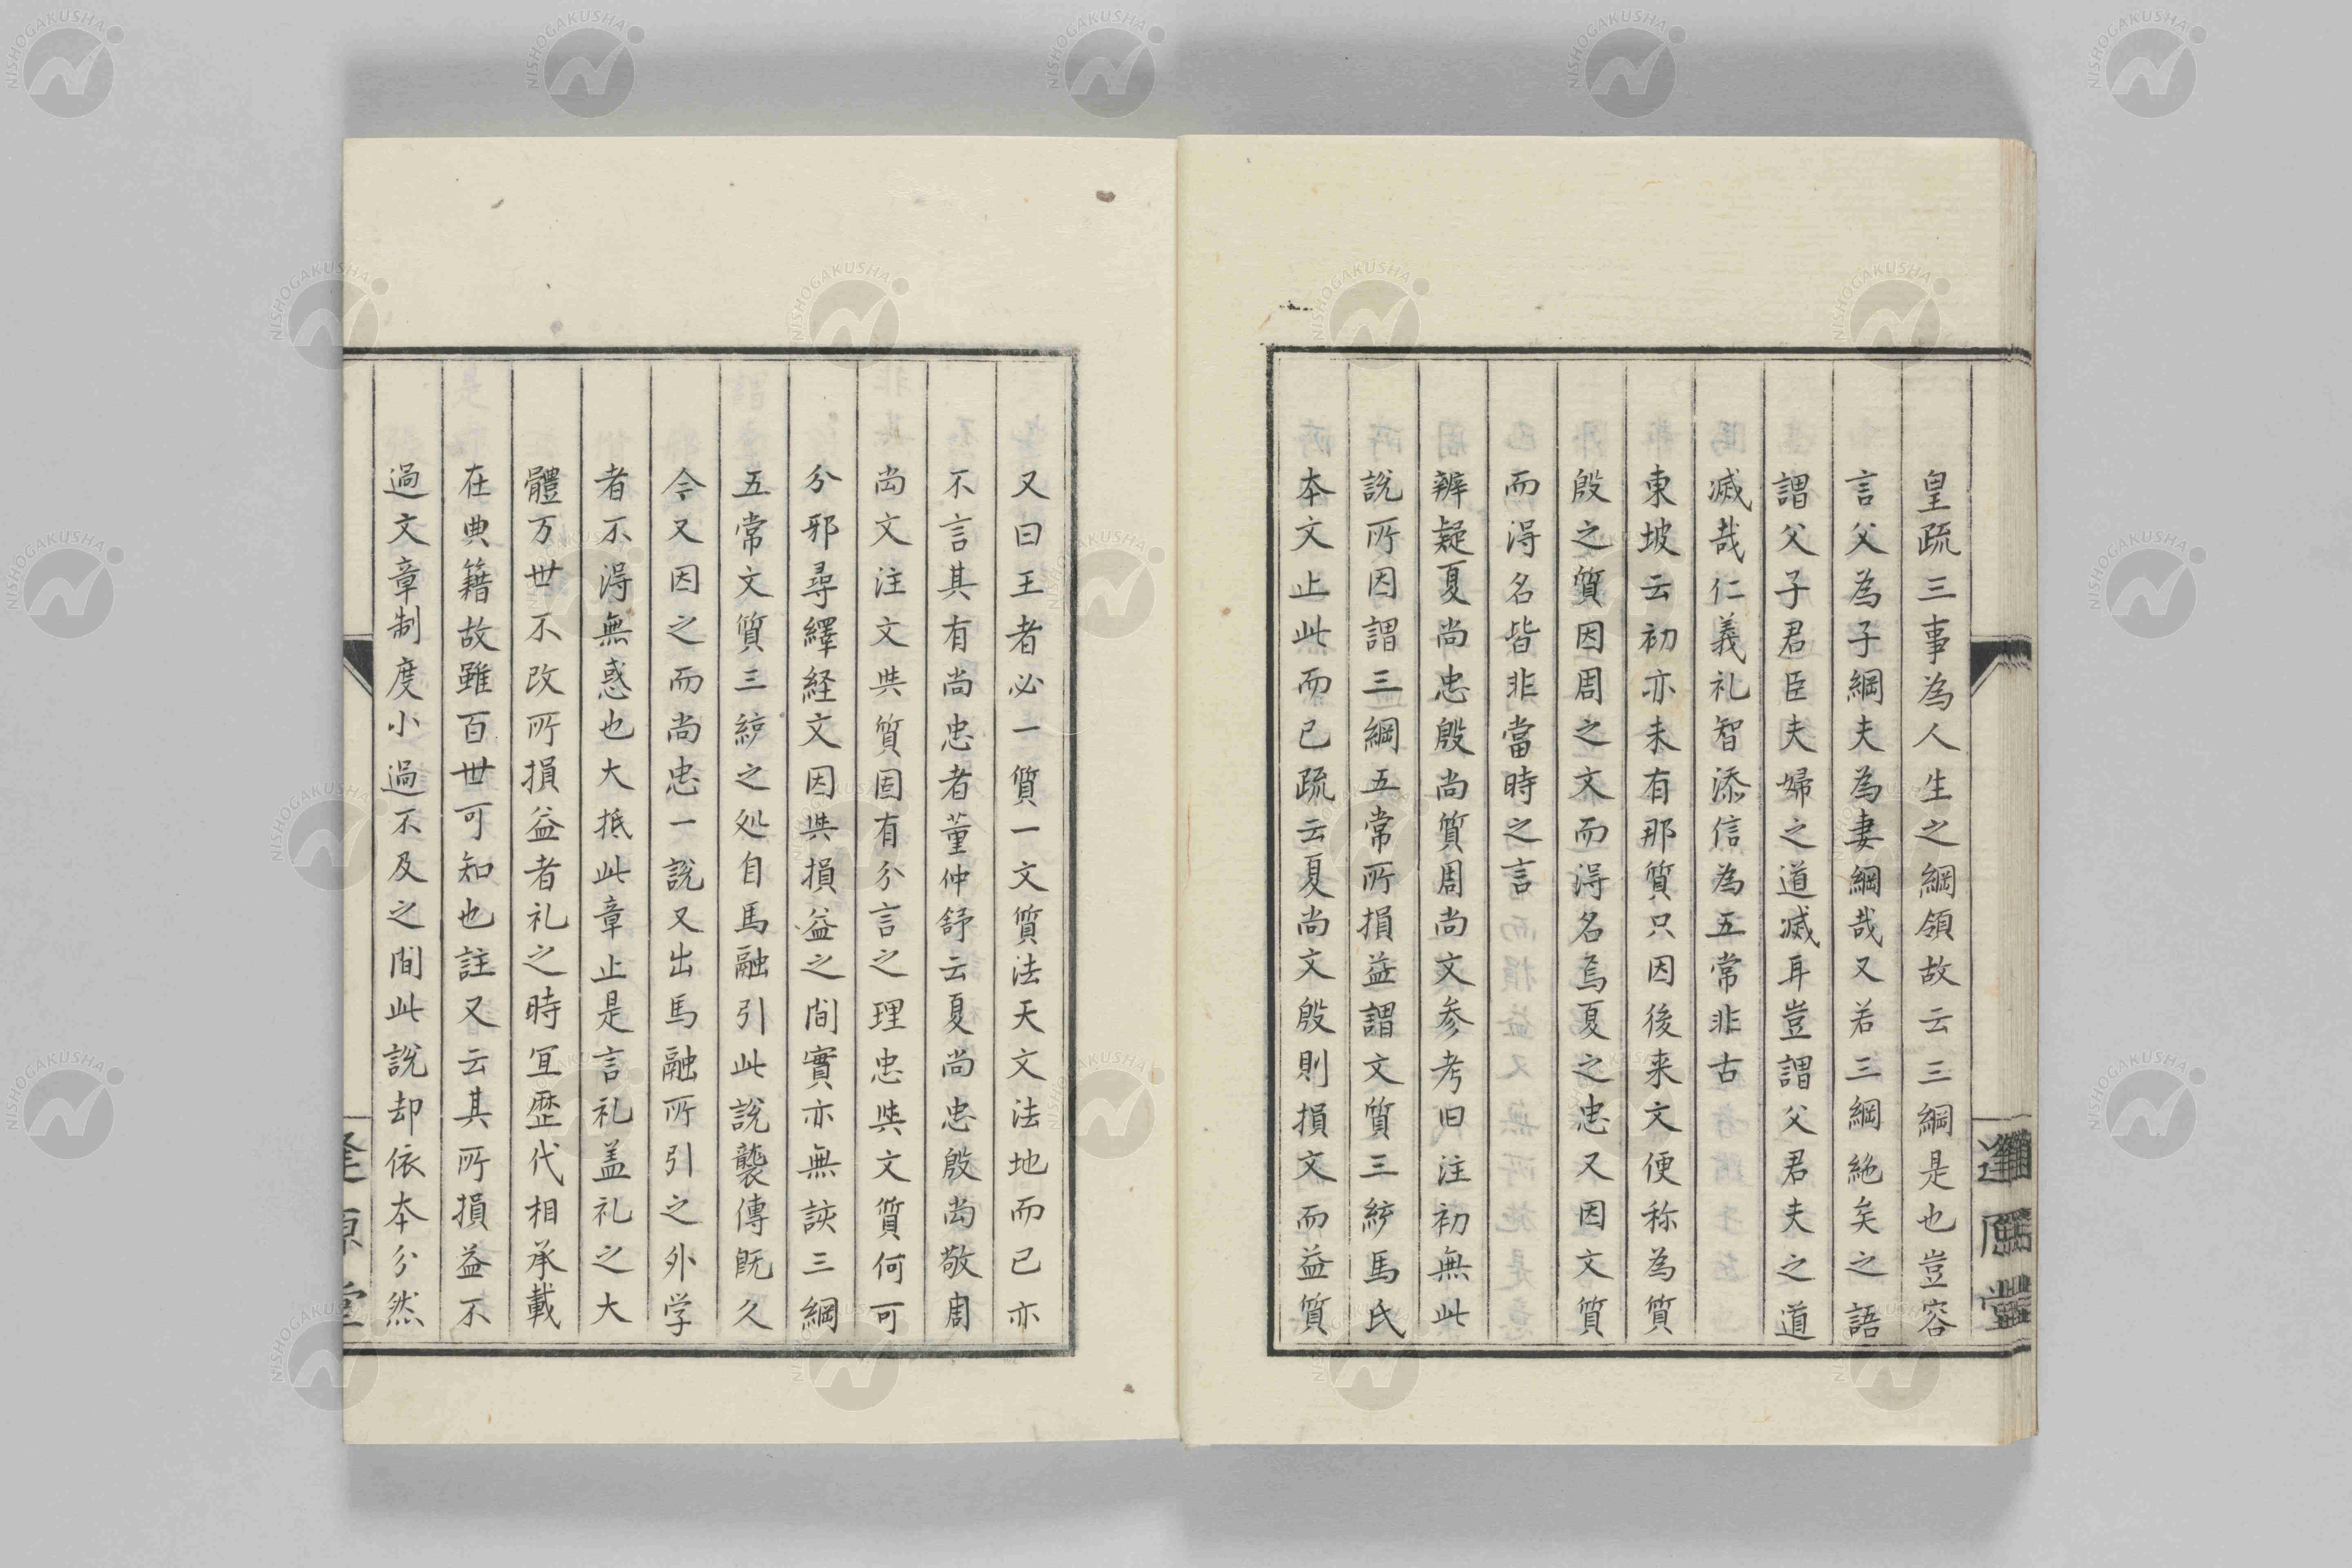 皇疏三事為人生之綱領故云三綱是也豈容
言父為子綱夫為妻綱哉又若三綱絶矣之語
謂父子君臣夫婦之道滅耳豈謂父君夫之道
滅哉仁義礼智添信為五常非古
東坡云初亦未有那質只因後来文便称為質
殷之質因周之文而得名焉夏之忠又因文質
而得名皆非當時之言
辨疑夏尚忠殷尚質周尚文参考旧注初無此
說所因謂三綱五常所損益謂文質三統馬氏
本文止此而已疏云夏尚文殷則損文而益質
又曰王者必一質一文質法天文法地而已亦
不言其有尚忠者董仲舒云夏尚忠殷尚敬周
尚文注文與質固有分言之理忠與文質何可
分邪尋繹経文因與損益之間實亦無該三綱
五常文質三統之処自馬融引此說襲傳既久
今又因之而尚忠一說又出馬融所引之外学
者不得無惑也大抵此章止是言礼盖礼之大
體万世不改所損益者礼之時宜歴代相承載
在典籍故雖百世可知也註又云其所損益不
過文章制度小過不及之間此說却依本分然
逢原堂
NISHOGAKUSHA